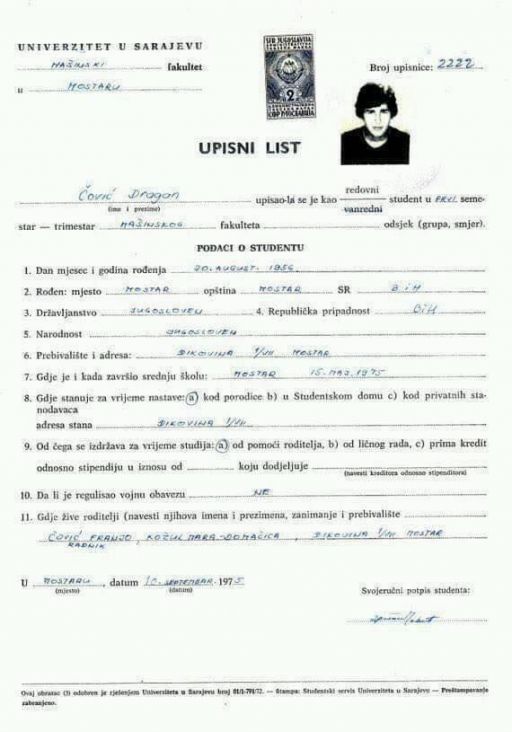 UNIVERZITET U SARAJEVU
MAŠINSKI fakultet
u MOSTARU
SFR JUGOSLAVIJA
2
Broj upisnice: 2222
UPISNI LIST
Čović Dragan upisao-la se je kao redovni vanredni student u PRVI seme-
(ime i prezime)
star — trimestar MAŠINSKOG fakulteta odsjek (grupa, smjer).
PODACI O STUDENTU
1. Dan mjesec i godina rođenja 20. AUGUST. 1956
2. Rođen: mjesto MOSTAR opština MOSTAR SR BIH
3. Državljanstvo JUGOSLOVEN 4. Republička pripadnost BIH
5. Narodnost JUGOSLOVEN
6. Prebivalište i adresa: ĐIKOVINA 1/VII MOSTAR
7. Gdje je i kada završio srednju školu: MOSTAR 15. MAJ. 1975
8. Gdje stanuje za vrijeme nastave: a) kod porodice b) u Studentskom domu c) kod privatnih sta-
nodavaca
adresa stana ĐIKOVINA 1/VII
9. Od čega se izdržava za vrijeme studija: a) od pomoći roditelja, b) od ličnog rada, c) prima kredit
odnosno stipendiju u iznosu od koju dodjeljuje
(navesti kreditora odnosno stipenditora)
10. Da li je regulisao vojnu obavezu NE
11. Gdje žive roditelji (navesti njihova imena i prezimena, zanimanje i prebivalište
ČOVIĆ FRANJO, KOŽUL MARA-DOMAĆICA, ĐIKOVINA 1/VII MOSTAR
RADNIK
U MOSTARU, datum 10. SEPTEMBAR 1975
(mjesto) (datum)
Svojeručni potpis studenta:
Ovaj obrazac (3) odobren je rješenjem Univerziteta u Sarajevu broj 01/1-791/72. — Štampa: Studentski servis Univerziteta u Sarajevu — Preštampavanje
zabranjeno.